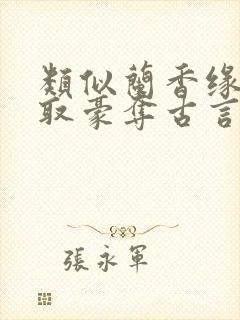 類似蘭香缘
取豪奪古言
張永軍